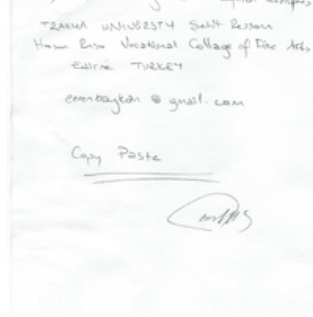 TRAKYA UNIVERSITY Şehit Ressam
Hasan Rıza Vocational College of Fine Arts
Edirne TURKEY
@ gmail.com
Copy Paste